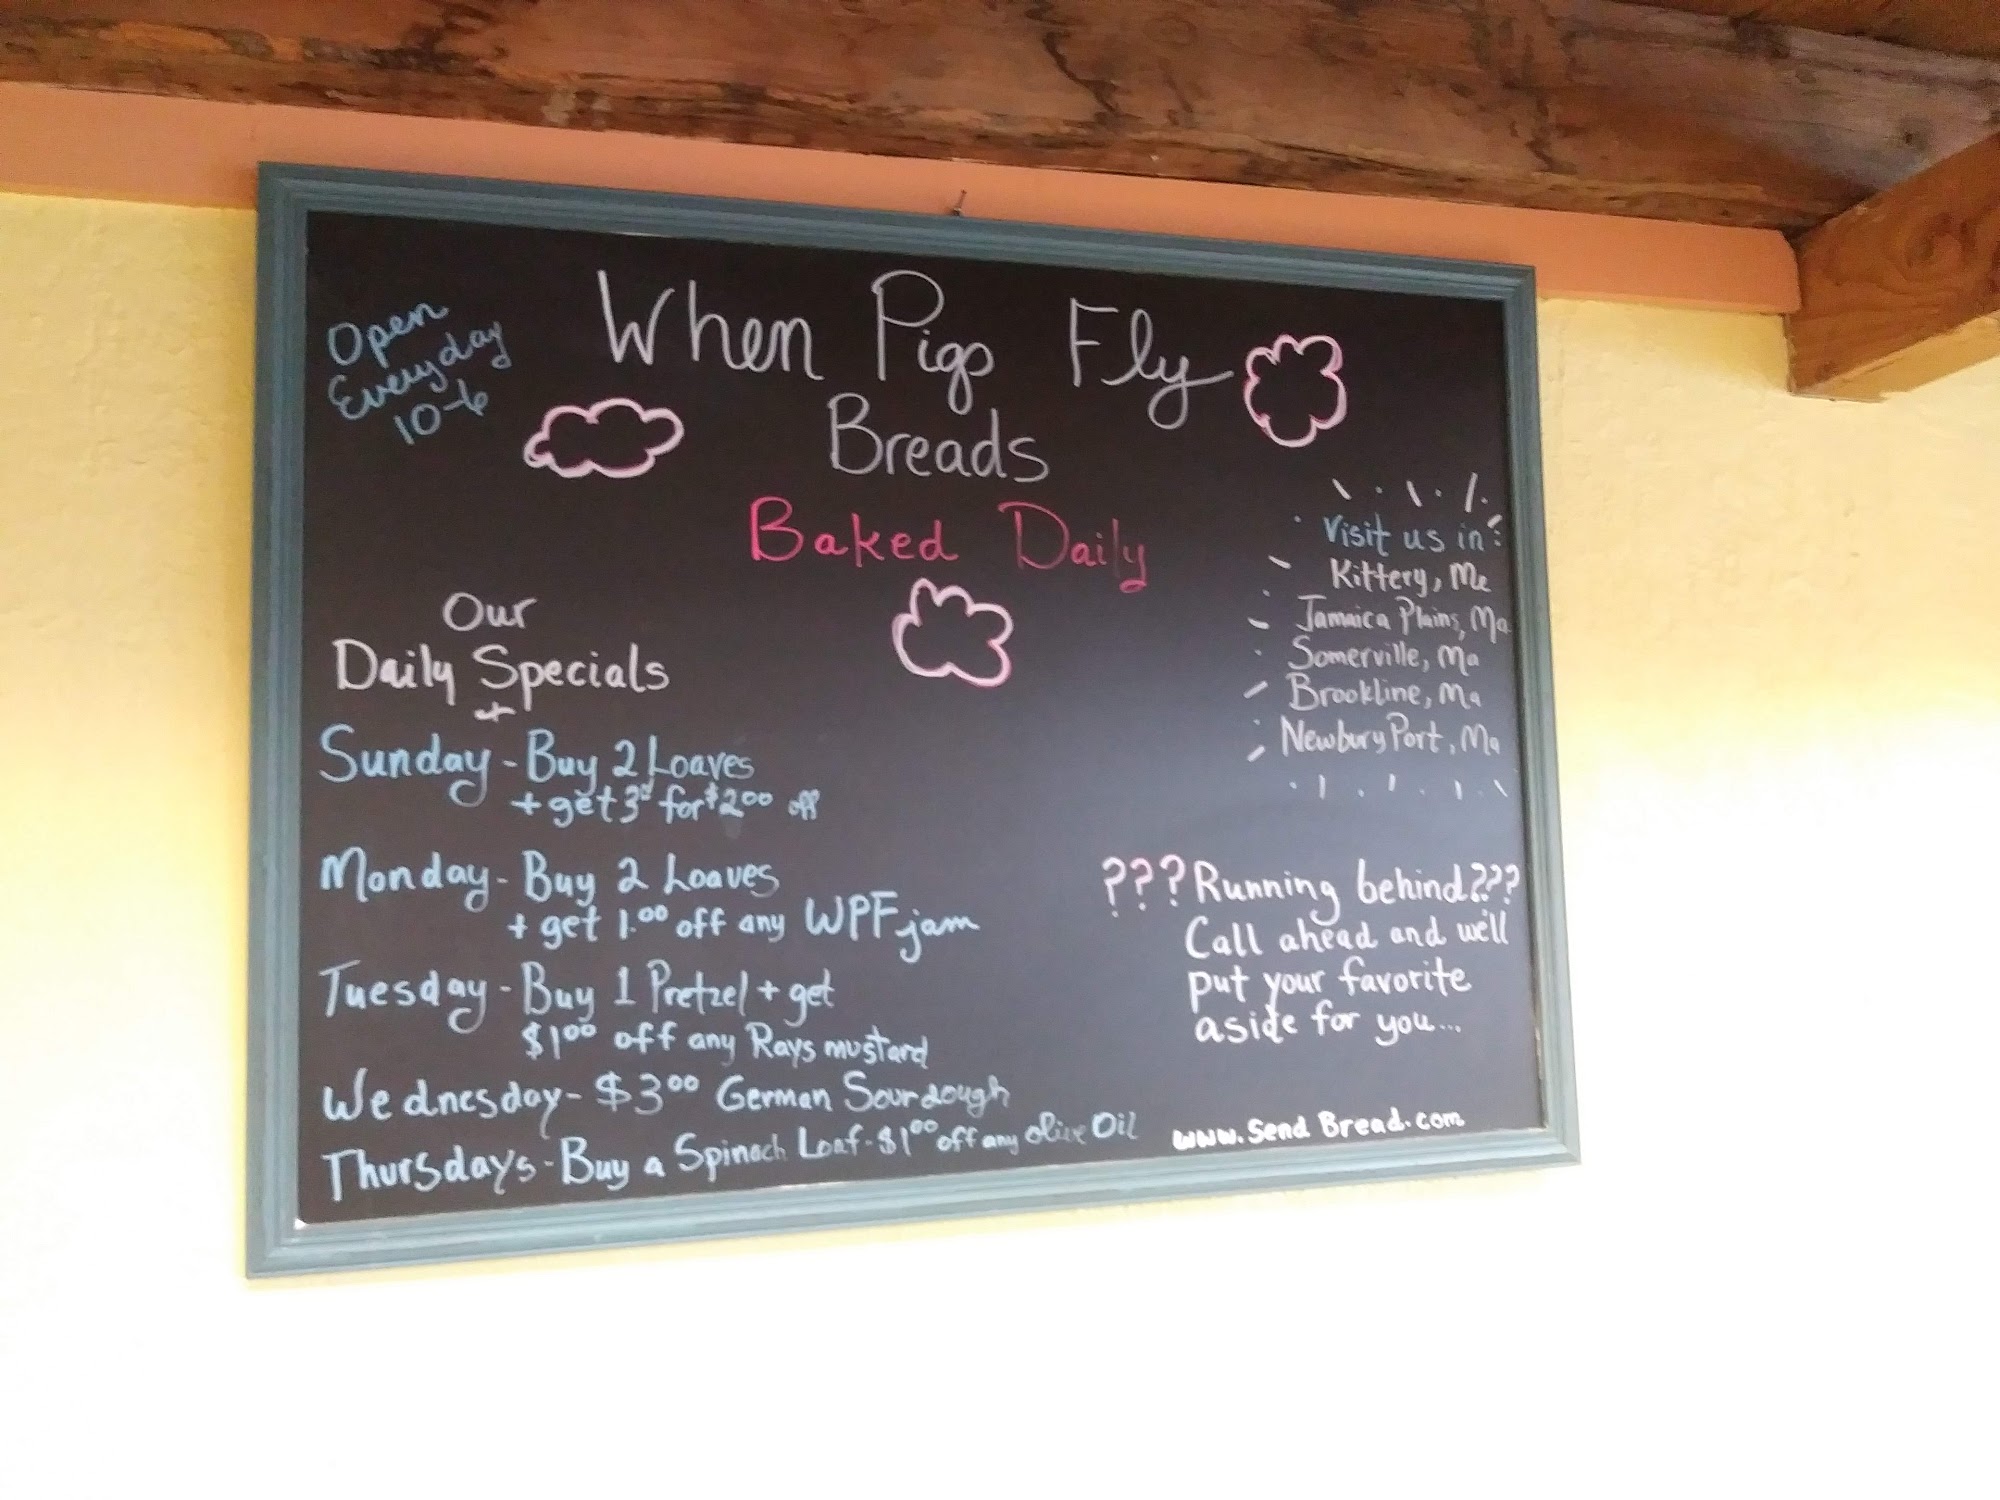 Open
Everyday
10-6
When Pigs Fly
Breads
Baked Daily
Our
Daily Specials
+
Sunday - Buy 2 Loaves
+ get 3rd for $2.00 off
Monday - Buy 2 Loaves
+ get 1.00 off any WPF jam
Tuesday - Buy 1 Pretzel + get
$1.00 off any Rays mustard
Wednesday - $3.00 German Sourdough
Thursdays - Buy a Spinach Loaf - $1.00 off any Olive Oil
Visit us in:
Kittery, Me
Jamaica Plains, Ma
Somerville, Ma
Brookline, Ma
NewburyPort, Ma
???Running behind???
Call ahead and we'll
put your favorite
aside for you...
www.SendBread.com